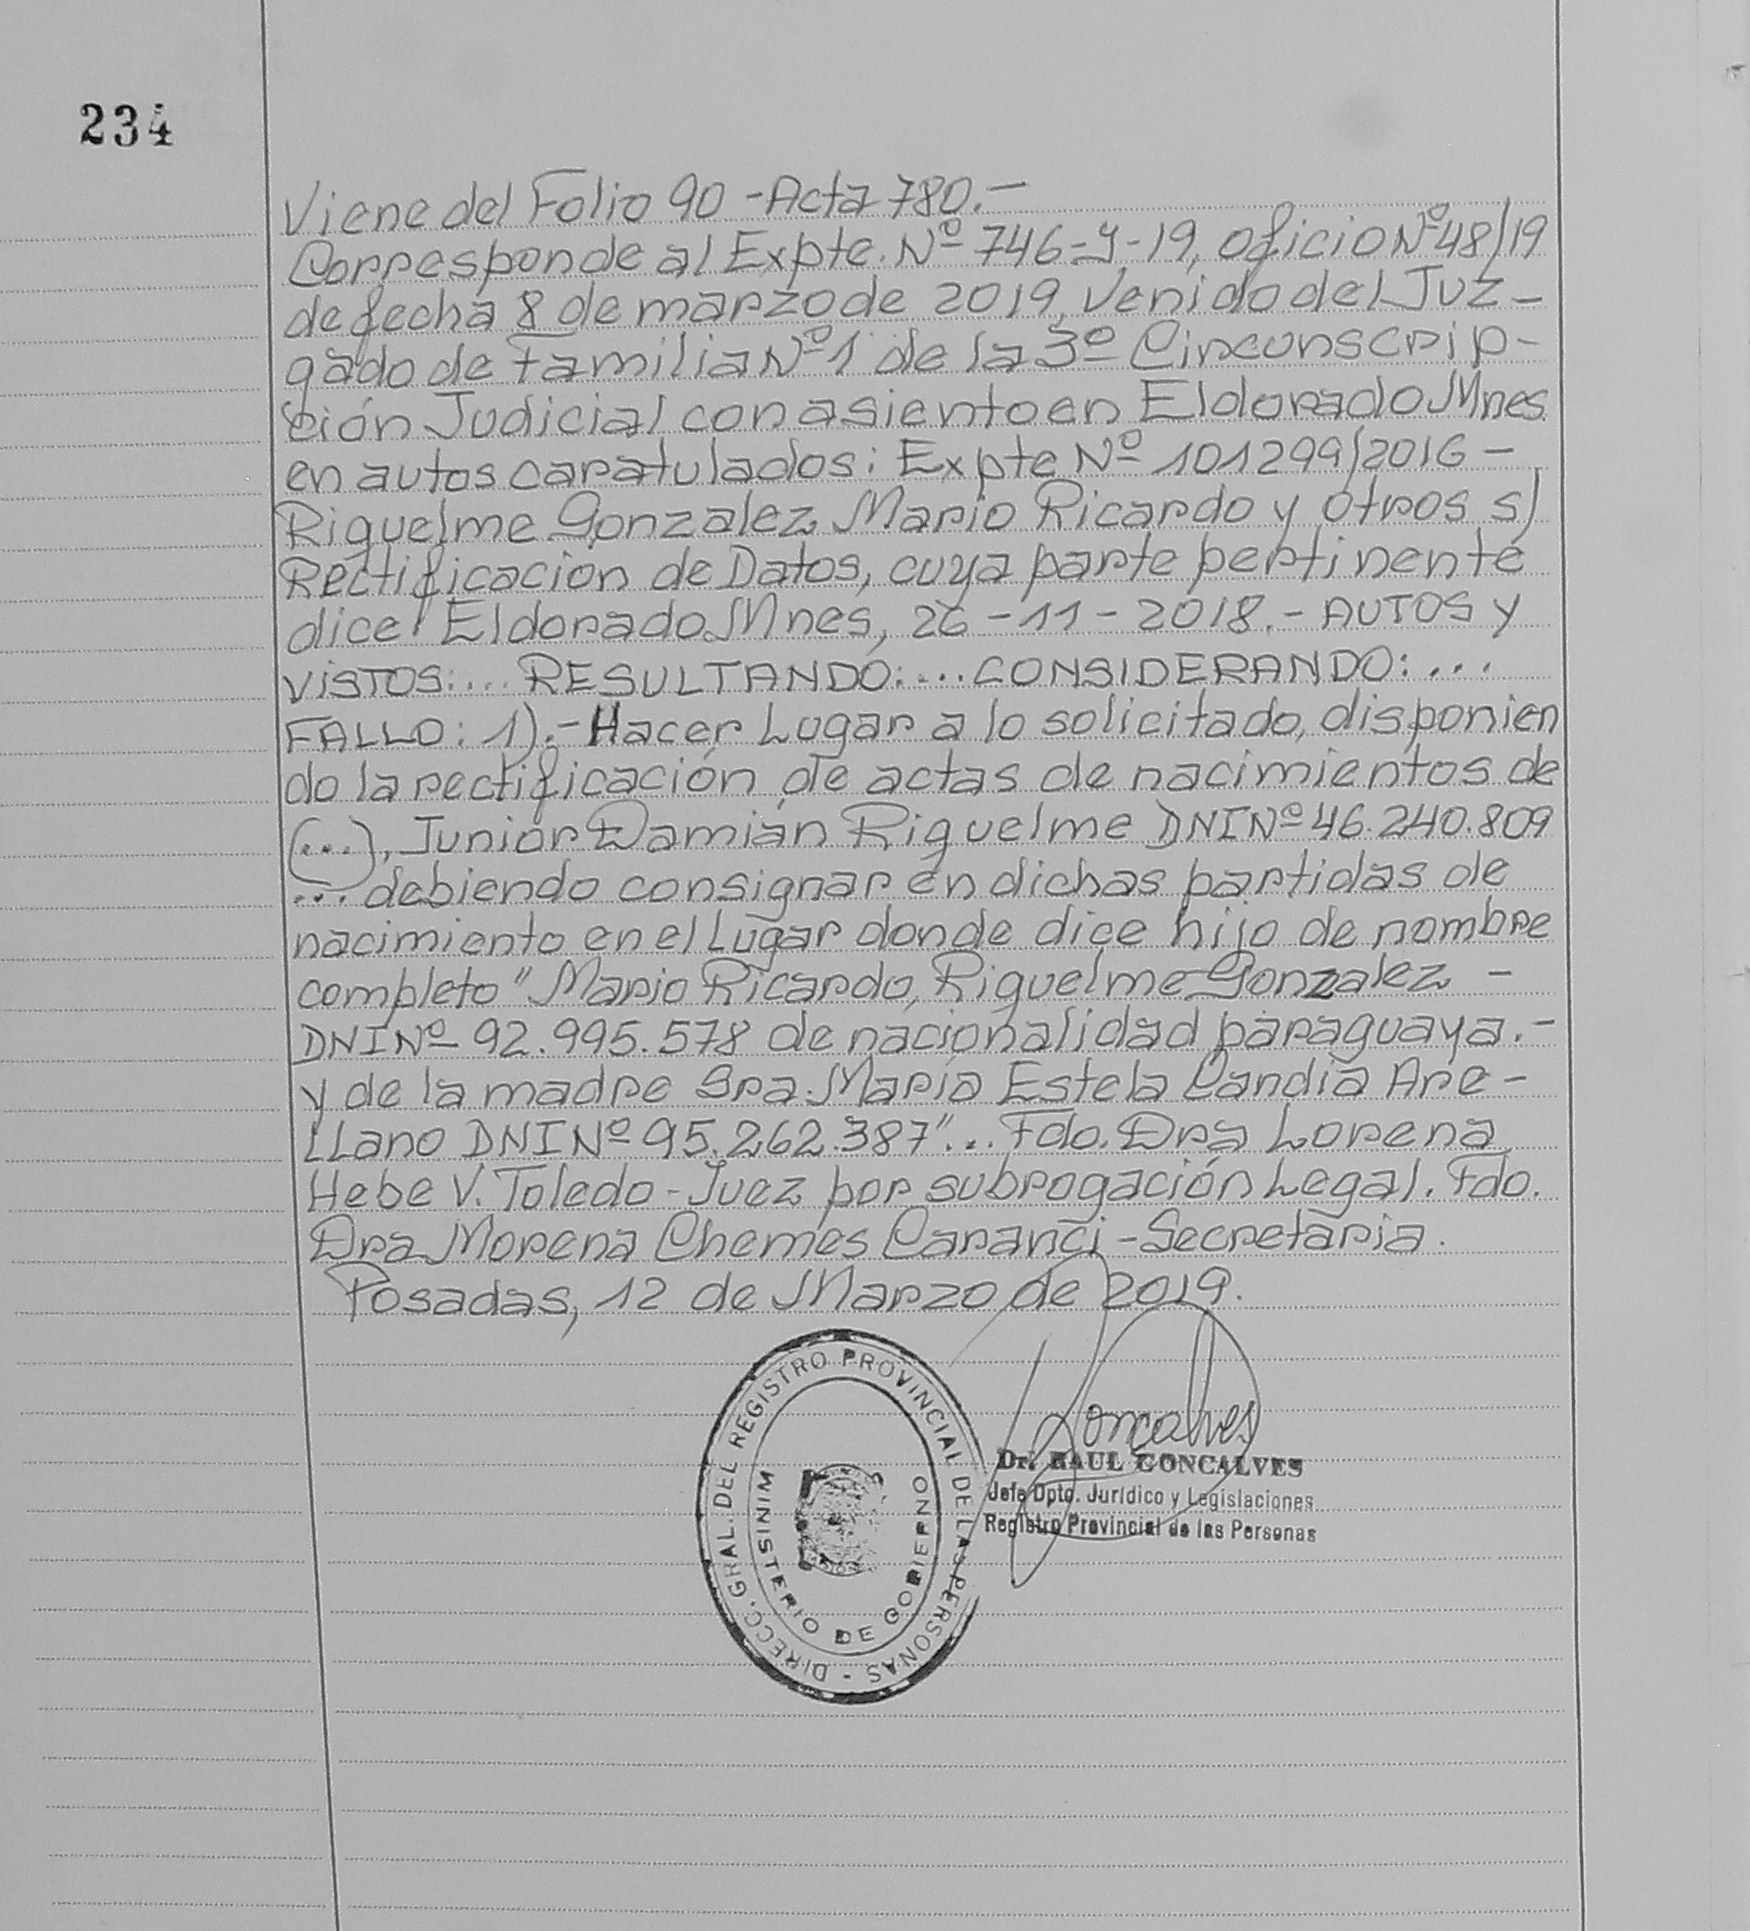 234
Viene del Folio 90 - Acta 780.-
Corresponde al Expte. Nº 746-Y-19, oficio Nº 48/19
de fecha 8 de marzo de 2019, Venido del Juz-
gado de Familia Nº 1 de la 3º Circunscrip-
ción Judicial con asiento en Eldorado Mnes.
en autos caratulados: Expte Nº 101299/2016 -
Riquelme Gonzalez Mario Ricardo y otros s/
Rectificación de Datos, cuya parte pertinente
dice: Eldorado Mnes, 26-11-2018.- AUTOS Y
VISTOS:... RESULTANDO:... CONSIDERANDO:...
FALLO: 1).- Hacer Lugar a lo solicitado, disponien
do la rectificación de actas de nacimientos de
(...), Junior Damián Riquelme DNI Nº 46.240.809
... debiendo consignar en dichas partidas de
nacimiento en el Lugar donde dice hijo de nombre
completo "Mario Ricardo, Riquelme Gonzalez -
DNI Nº 92.995.578 de nacionalidad paraguaya.-
y de la madre Sra. María Estela Candia Are-
LLano DNI Nº 95.262.387"... Fdo. Dra Lorena
Hebe V. Toledo - Juez por subrogación Legal. Fdo.
Dra Morena Chemes Caranci - Secretaria.
Posadas, 12 de Marzo de 2019.
DIRECC. GRAL. DEL REGISTRO PROVINCIAL DE LAS PERSONAS -
MINISTERIO DE GOBIERNO
Goncalves
Dr. RAUL GONCALVES
Jefe Dpto. Jurídico y Legislaciones
Registro Provincial de las Personas